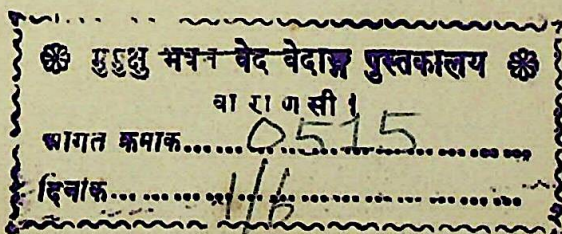 मुमुक्षु भवन वेद वेदाङ्ग पुस्तकालय
वाराणसी ।
आगत क्रमाक...... 0515 ..................
दिनांक.......... 1/6 ..........................